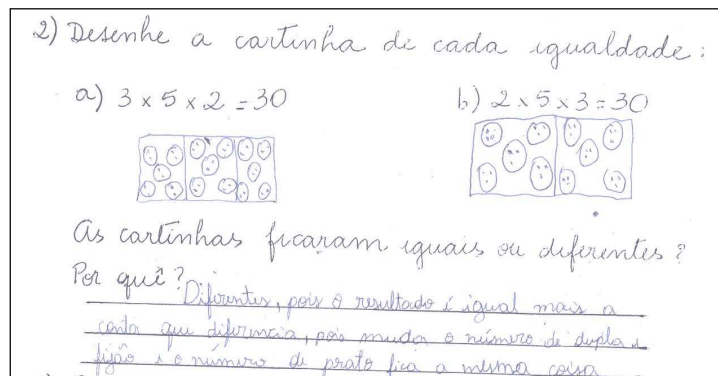 2) Desenhe a cartinha de cada igualdade:
a) 3 x 5 x 2 = 30
b) 2 x 5 x 3 = 30
As cartinhas ficaram iguais ou diferentes?
Por quê?
Diferentes, pois o resultado é igual mais a
conta que diferencia, pois muda o número de dupla e
fijão e o número de prato fica a mesma coisa